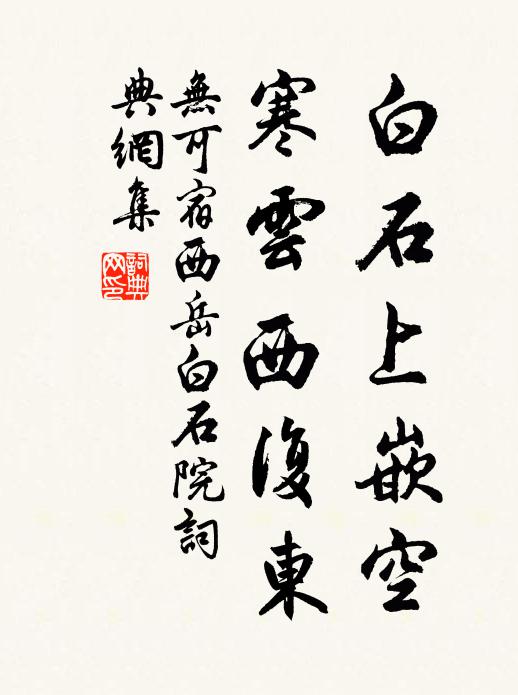 白石上嵌空
寒雲西復東
無可宿西岳白石院詞
典網集
詞典网印